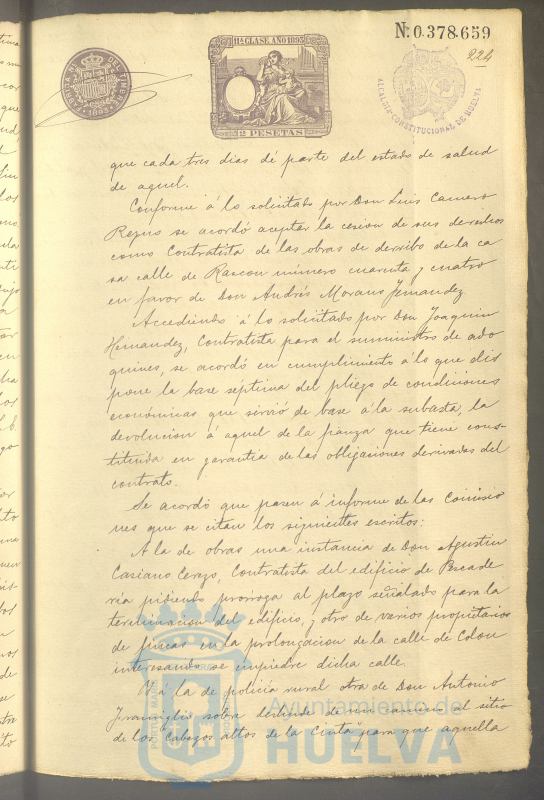 11ª CLASE AÑO 1893
2 PESETAS
Nº 0.378.659
224
ALCALDIA CONSTITUCIONAL DE HUELVA
que cada tres dias dé parte del estado de salud
de aquel.
Conforme á lo solicitado por Don Luis
se acordó aceptar la cesion de sus derechos
como Contratista de las obras de derribo de la ca
sa calle de Rascon número cuarenta y cuatro
en favor de Don Andrés Morano Fernandez
Accediendo á lo solicitado por Don Joaquin
Hernandez, Contratista para el suministro de ado
quines, se acordó en cumplimiento á lo que dis
pone la base séptima del pliego de condiciones
económicas que sirvió de base á la subasta, la
devolucion á aquel de la fianza que tiene cons-
tituida en garantia de las obligaciones derivadas del
contrato.
Se acordó que pasen á informe de las Comisio
nes que se citan los siguientes escritos:
A la de obras una instancia de Don Agustin
Casiano Cerezo, Contratista del edificio de Pescade
ria pidiendo prorroga al plazo señalado para la
terminacion del edificio, y otro de varios propietarios
de fincas en la prolongacion de la calle de Colon
interesando se empiedre dicha calle.
Y á la de policia rural otra de Don Antonio
sobre deslinde de un camino al sitio
de los Cabezos altos de la Cinta para que aquella
Ayuntamiento de
HUELVA